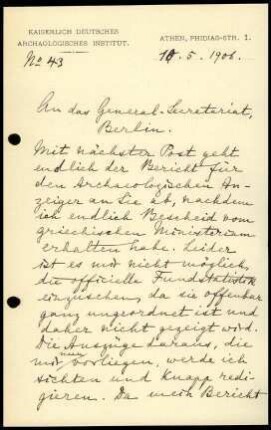 KAISERLICH DEUTSCHES
ARCHAOLOGISCHES INSTITUT.
ATHEN, PHIDIAS-STR. 1.
No 43
10.5.1906.
An das General-Secretariat,
Berlin.
Mit nächster Post geht
endlich der Bericht für
den Archaeologischen An-
zeiger an Sie ab, nachdem
ich endlich Bescheid vom
griechischen Ministerium
erhalten habe. Leider
ist es mir nicht möglich,
die officielle Fundstatistik
einzusehen, da sie offenbar
ganz ungeordnet ist und
daher nicht gezeigt wird.
Die Auszüge daraus, die
mir nun vorliegen, werde ich
sichten und knapp redi-
gieren. Da mein Bericht